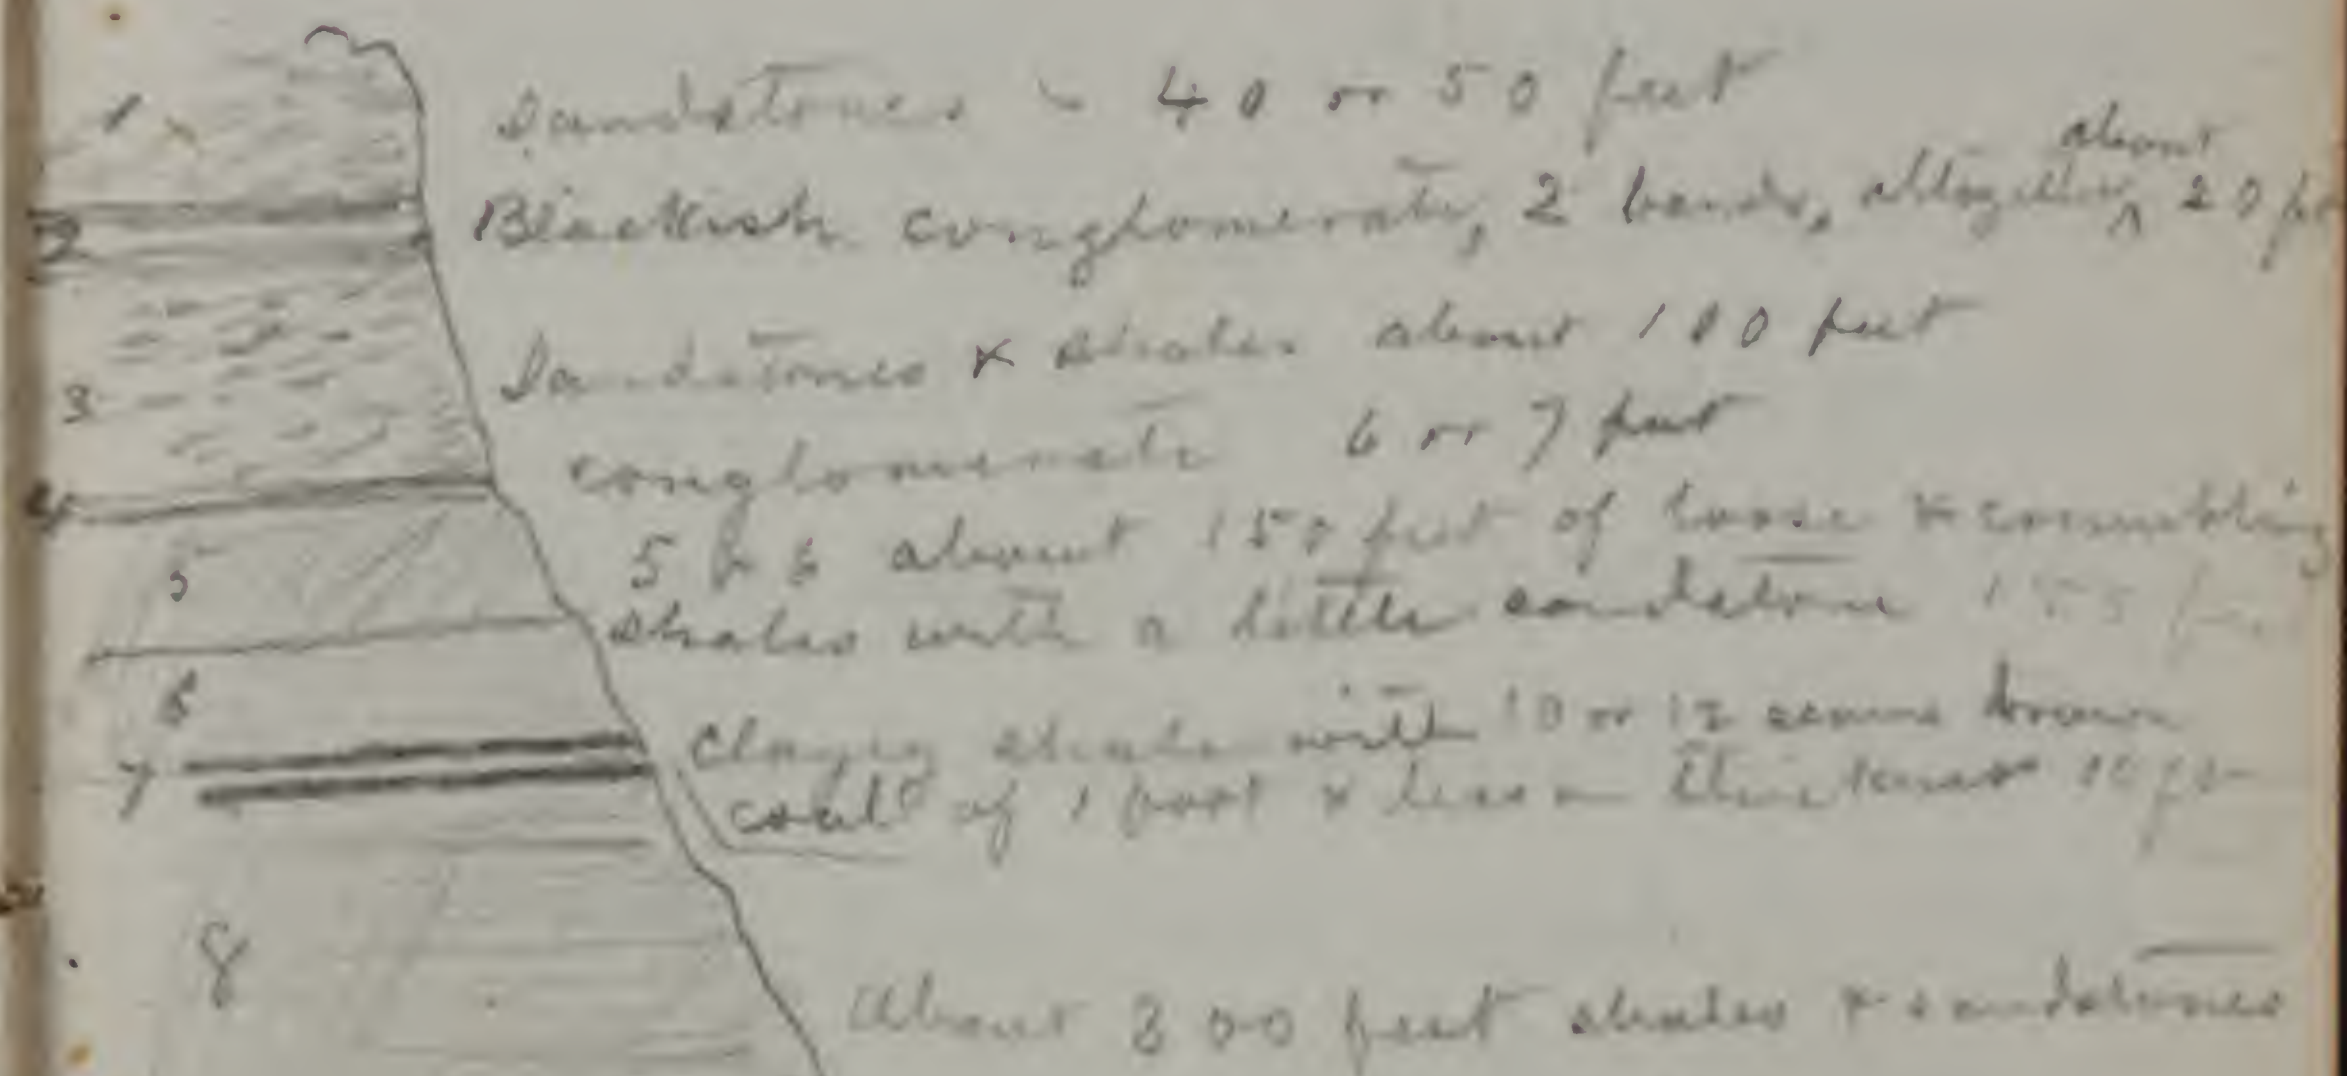 1 Sandstones - 40 or 50 feet
about
2 Blackish conglomerate, 2 bands, altogether ^ 20
3 Sandstones & shales about 100 feet
4 conglomerate 6 or 7 feet
5 5 & 6 about 150 feet of loose & crumbling
shales with a little sandstone 150
6
7 Clayey shale with 10 or 12 seams brown
coal of 1 foot & less in thickness
8 About 300 feet shales & sandstones